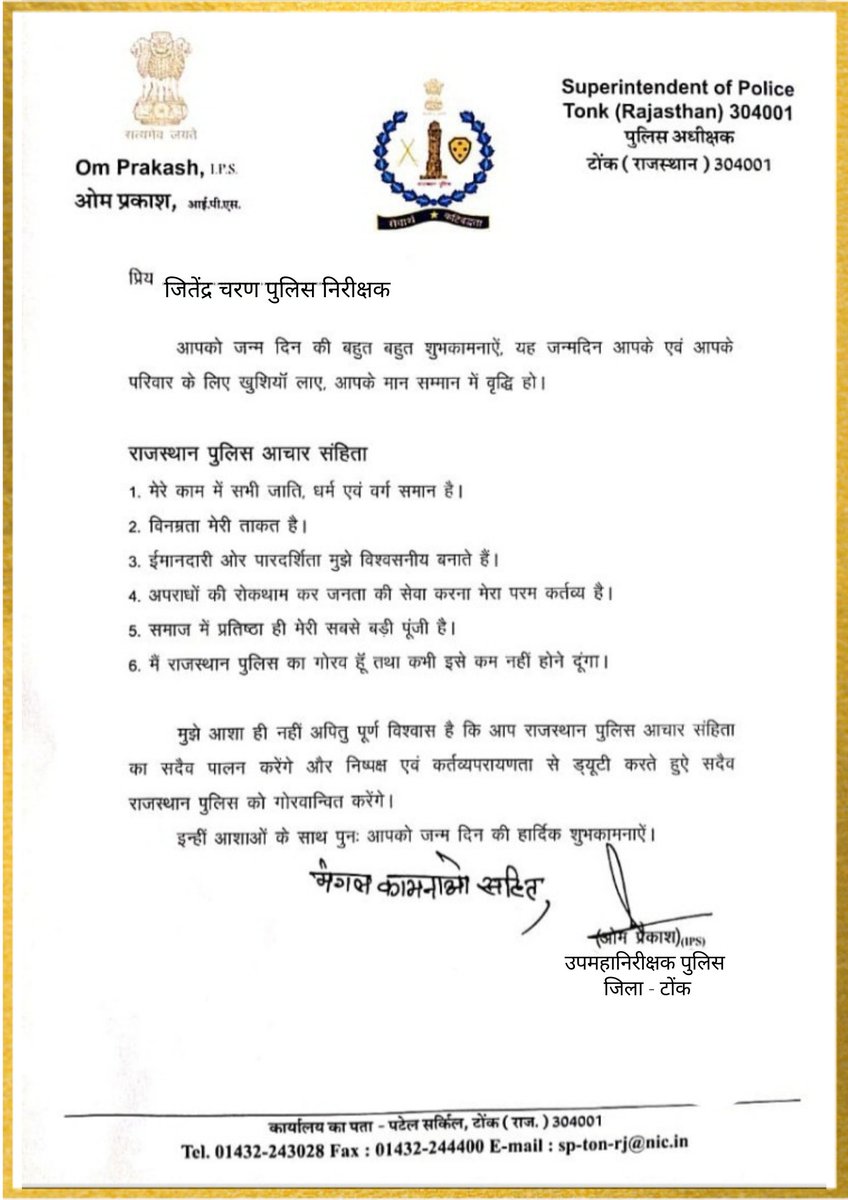 सत्यमेव जयते
Om Prakash, I.P.S.
ओम प्रकाश, आई.पी.एस.
राजस्थान पुलिस
सेवार्थ कटिबद्धता
Superintendent of Police
Tonk (Rajasthan) 304001
पुलिस अधीक्षक
टोंक ( राजस्थान ) 304001
प्रिय जितेंद्र चरण पुलिस निरीक्षक
आपको जन्म दिन की बहुत बहुत शुभकामनाऐं, यह जन्मदिन आपके एवं आपके
परिवार के लिए खुशियॉ लाए, आपके मान सम्मान में वृद्धि हो।
राजस्थान पुलिस आचार संहिता
1. मेरे काम में सभी जाति, धर्म एवं वर्ग समान है।
2. विनम्रता मेरी ताकत है।
3. ईमानदारी ओर पारदर्शिता मुझे विश्वसनीय बनाते हैं।
4. अपराधों की रोकथाम कर जनता की सेवा करना मेरा परम कर्तव्य है।
5. समाज में प्रतिष्ठा ही मेरी सबसे बड़ी पूंजी है।
6. मैं राजस्थान पुलिस का गोरव हूँ तथा कभी इसे कम नहीं होने दूंगा।
मुझे आशा ही नहीं अपितु पूर्ण विश्वास है कि आप राजस्थान पुलिस आचार संहिता
का सदैव पालन करेंगे और निष्पक्ष एवं कर्तव्यपरायणता से ड्यूटी करते हुऐ सदैव
राजस्थान पुलिस को गोरवान्वित करेंगे।
इन्हीं आशाओं के साथ पुनः आपको जन्म दिन की हार्दिक शुभकामनाऐं।
मंगल कामनाओ सहित,
(ओम प्रकाश)(IPS)
उपमहानिरीक्षक पुलिस
जिला - टोंक
कार्यालय का पता - पटेल सर्किल, टोंक ( राज. ) 304001
Tel. 01432-243028 Fax : 01432-244400 E-mail : sp-ton-rj@nic.in